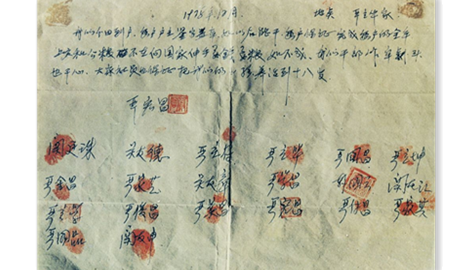 1978年12月 地点 严立华家
我们分田到户,每户户主签字盖章,如以后能干,每户保证完成每户的全年
上交和公粮,不在向国家伸手要钱要粮,如不成,我们干部作牢剎头
也干心,大家社员也保证把我们的小孩养活到十八岁
严宏昌
关廷珠 关友德 严立符 严立华 严国昌 严立坤
严金昌 严家芝 关友章 严学昌 韩国云 关友江
严立学 严俊昌 严美昌 严付昌
严国品 关友申